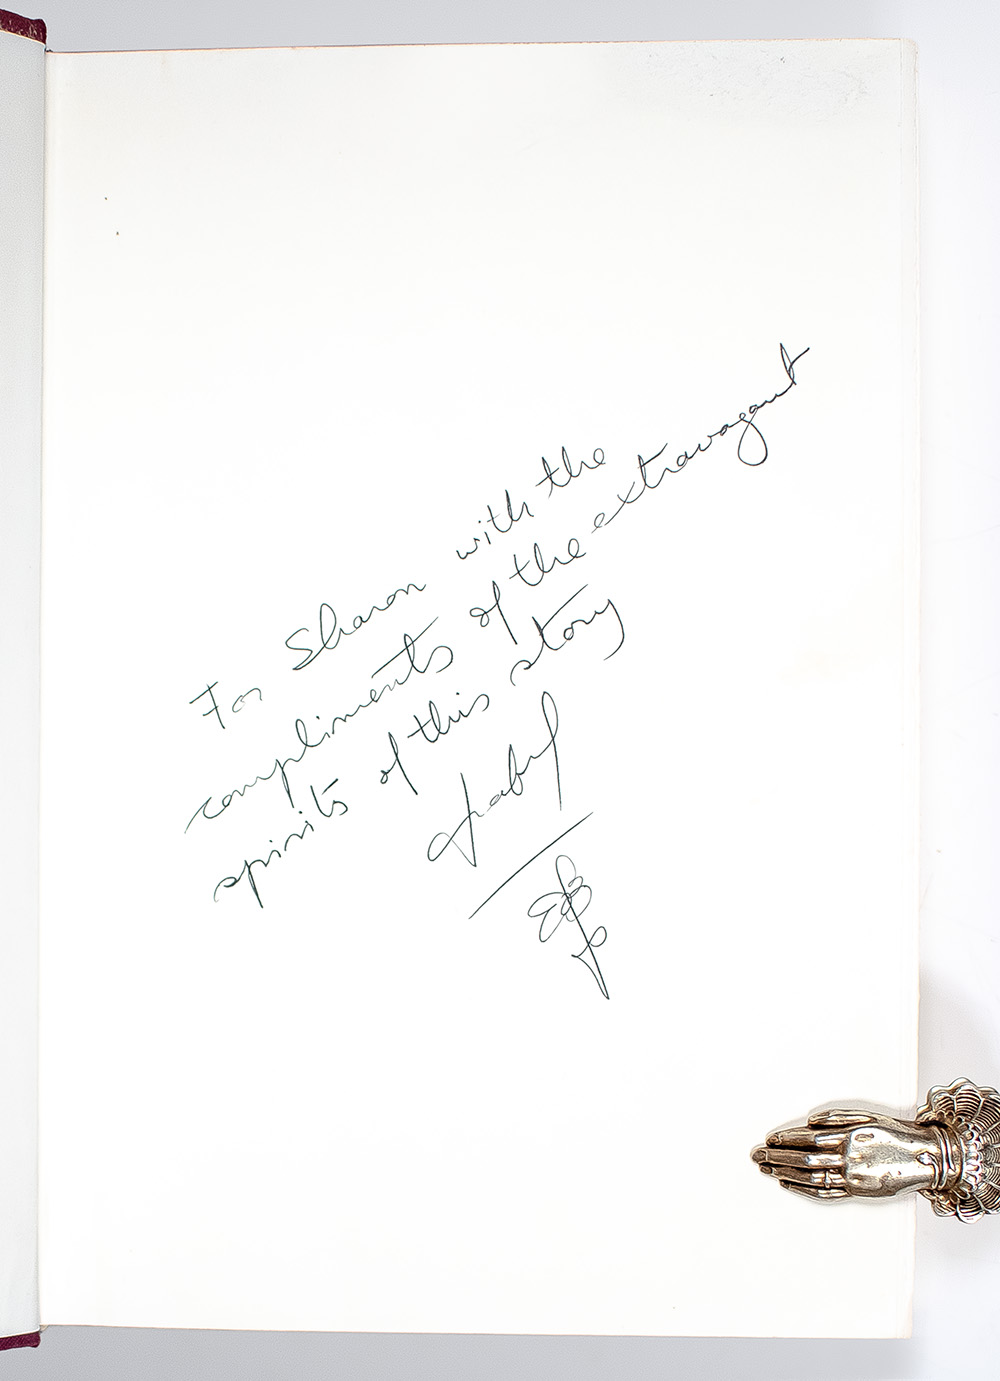 For Sharon with the
compliments of the extravagant
spirits of this story